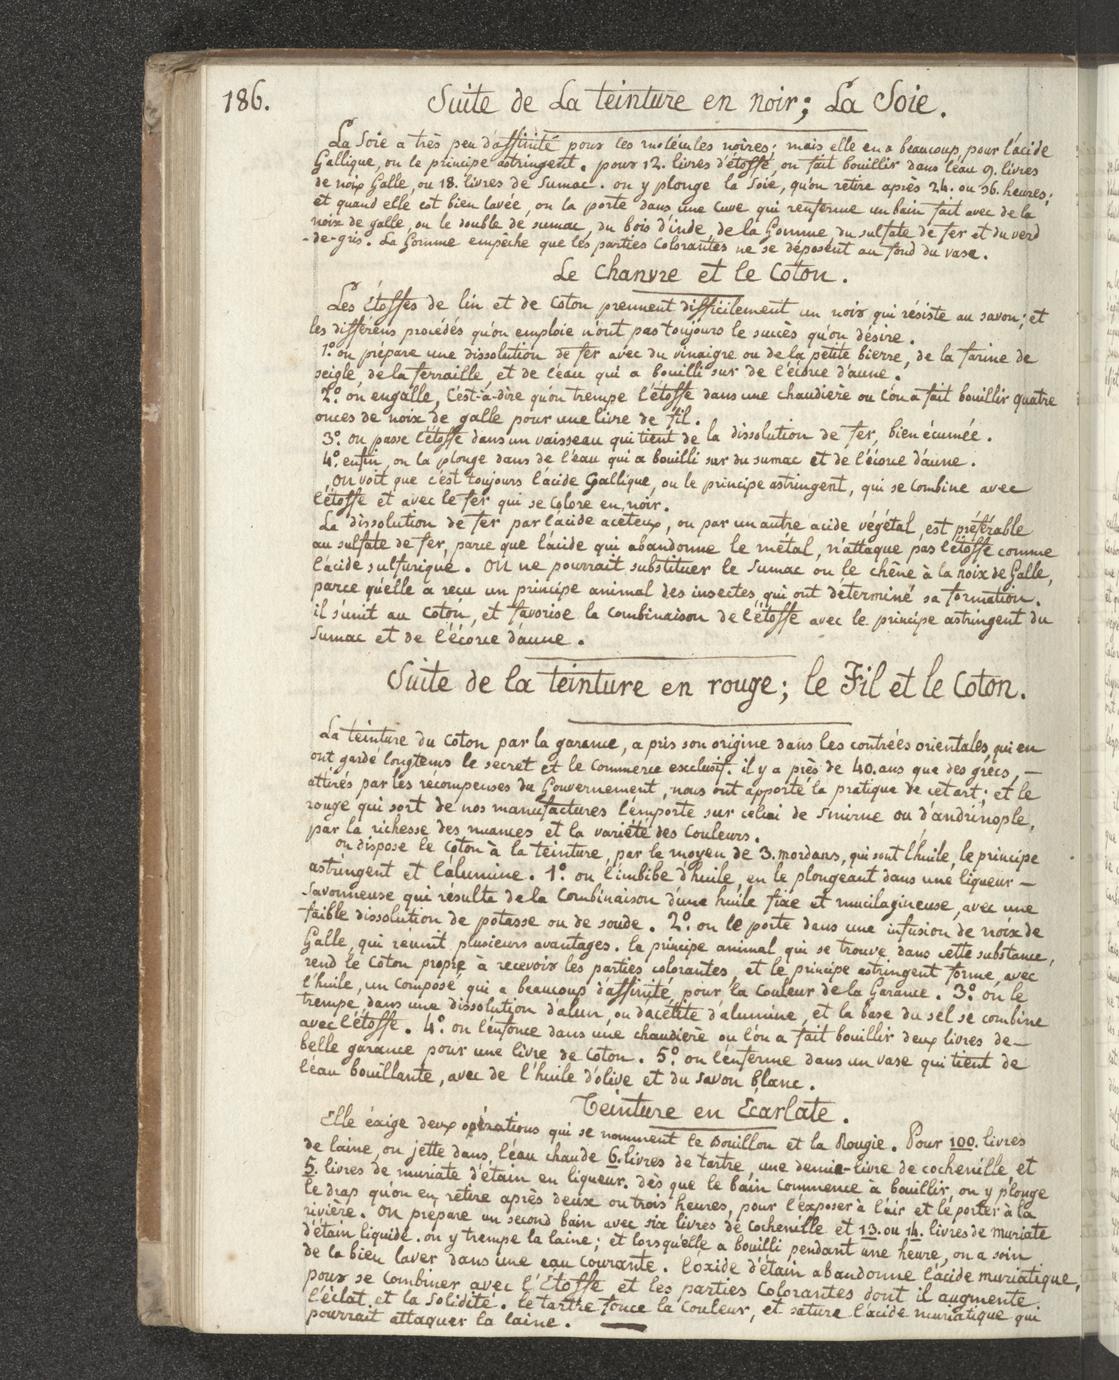 186.
Suite de La teinture en noir; La Soie.
La Soie a très peu d'affinité pour les molécules noires; mais elle en a beaucoup pour l'acide
Gallique, ou le principe astringent. pour 12. livres d'étoffe, on fait bouillir dans l'eau 9. livres
de noix Galle, ou 18. livres de Sumac. on y plonge la Soie, qu'on retire après 24. ou 36. heures;
et quand elle est bien lavée, on la porte dans une cuve qui renferme un bain fait avec de la
noix de galle, ou le double de sumac, du bois d'inde, de la Gomme, du sulfate de fer et du verd
-de-gris. La Gomme empêche que les parties Colorantes ne se déposent au fond du vase.
Le Chanvre et le Coton.
Les Étoffes de lin et de Coton prennent difficilement un noir qui résiste au savon; et
les différens procédés qu'on emploie n'ont pas toujours le succès qu'on désire.
1.° on prépare une dissolution de fer avec du vinaigre ou de la petite bierre, de la farine de
seigle, de la ferraille, et de l'eau qui a bouilli sur de l'écorce d'aune.
2.° on engalle, C'est-à-dire qu'on trempe l'étoffe dans une chaudière où l'on a fait bouillir quatre
onces de noix de galle pour une livre de fil.
3.° on passe l'étoffe dans un vaisseau qui tient de la dissolution de fer, bien écumée.
4.° enfin, on la plonge dans de l'eau qui a bouilli sur du sumac et de l'écorce d'aune.
On voit que c'est toujours l'acide Gallique, ou le principe astringent, qui se Combine avec
l'étoffe et avec le fer qui se Colore en noir.
La dissolution de fer par l'acide acéteux, ou par un autre acide végétal, est préférable
au sulfate de fer, parce que l'acide qui abandonne le métal, n'attaque pas l'étoffe comme
l'acide sulfurique. On ne pourrait substituer le Sumac ou le chêne à la noix de Galle,
parce qu'elle a reçu un principe animal des insectes qui ont déterminé sa formation.
il s'unit au Coton, et favorise la Combinaison de l'étoffe avec le principe astringent du
Sumac et de l'écorce d'aune.
Suite de la teinture en rouge; le Fil et le Coton.
La teinture du Coton par la garance, a pris son origine dans les contrées orientales, qui en
ont gardé longtems le secret et le Commerce exclusif. il y a près de 40. ans que des grecs, —
attirés par les récompenses du Gouvernement, nous ont apporté la pratique de cet art; et le
rouge qui sort de nos manufactures l'emporte sur celui de Smirne ou d'andrinople,
par la richesse des nuances et la variété des Couleurs.
on dispose le Coton à la teinture, par le moyen de 3. mordans, qui sont l'huile, le principe
astringent et l'alumine. 1.° on l'imbibe d'huile, en le plongeant dans une liqueur —
savonneuse qui résulte de la Combinaison d'une huile fixe et mucilagineuse, avec une
faible dissolution de potasse ou de soude. 2.° on le porte dans une infusion de noix de
Galle, qui réunit plusieurs avantages. le principe animal qui se trouve dans cette substance,
rend le Coton propre à recevoir les parties colorantes, et le principe astringent forme, avec
l'huile, un Composé qui a beaucoup d'affinité pour la Couleur de la Garance. 3.° on le
trempe dans une dissolution d'alun, ou d'acétite d'alumine, et la base du sel se combine
avec l'étoffe. 4.° on l'enfonce dans une chaudière où l'on a fait bouillir deux livres de —
belle garance pour une livre de Coton. 5.° on l'enferme dans un vase qui tient de
l'eau bouillante, avec de l'huile d'olive et du Savon blanc.
Teinture en Ecarlate.
Elle éxige deux opérations qui se nomment le Bouillon et la Rougie. Pour 100. livres
de laine, on jette dans l'eau chaude 6. livres de tartre, une demie-livre de cochenille et
5. livres de muriate d'étain en liqueur. dès que le bain commence à bouillir, on y plonge
le drap qu'on en retire après deux ou trois heures, pour l'exposer à l'air et le porter à la
rivière. On prépare un second bain avec six livres de Cochenille et 13. ou 14. livres de muriate
d'étain liquide. on y trempe la laine; et lorsqu'elle a bouilli pendant une heure, on a soin
de la bien laver dans une eau Courante. l'oxide d'étain abandonne l'acide muriatique,
pour se Combiner avec l'Étoffe et les parties Colorantes dont il augmente
l'éclat et la Solidité. le tartre fonce la Couleur, et sature l'acide muriatique qui
pourrait attaquer la laine. —